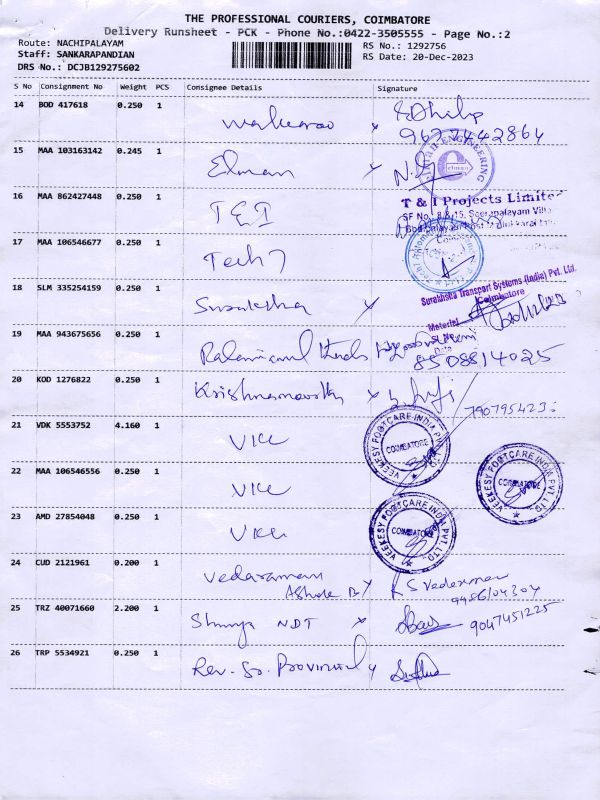 THE PROFESSIONAL COURIERS, COIMBATORE
Delivery Runsheet - PCK - Phone No.:0422-3505555 - Page No.:2
Route: NACHIPALAYAM
RS No.: 1292756
Staff: SANKARAPANDIAN
RS Date: 20-Dec-2023
DRS No.: DCJB129275602
S No Consignment No Weight PCS Consignee Details Signature
14 BOD 417618 0.250 1
9627442864
15 MAA 103163142 0.245 1 Elman
ENGINEERING
elman
16 MAA 862427448 0.250 1 T&I
T & I Projects Limited
17 MAA 106546677 0.250 1 Tech 7
18 SLM 335254159 0.250 1
Surabhsha Transport Systems (India) Pvt. Ltd.
Coimbatore
Material
19 MAA 943675656 0.250 1
8508814025
20 KOD 1276822 0.250 1 Krishnamoorthy
21 VDK 5553752 4.160 1 VKC
VEEKESY FOOTCARE INDIA PVT. LTD.
COIMBATORE
22 MAA 106546556 0.250 1 VKC
VEEKESY FOOTCARE INDIA PVT. LTD.
COIMBATORE
23 AMD 27854048 0.250 1 VKC
VEEKESY FOOTCARE INDIA PVT. LTD.
COIMBATORE
24 CUD 2121961 0.200 1 Vedaraman
25 TRZ 40071660 2.200 1 Shunya NDT
9047451225
26 TRP 5534921 0.250 1 Rev. Sr. Provincial